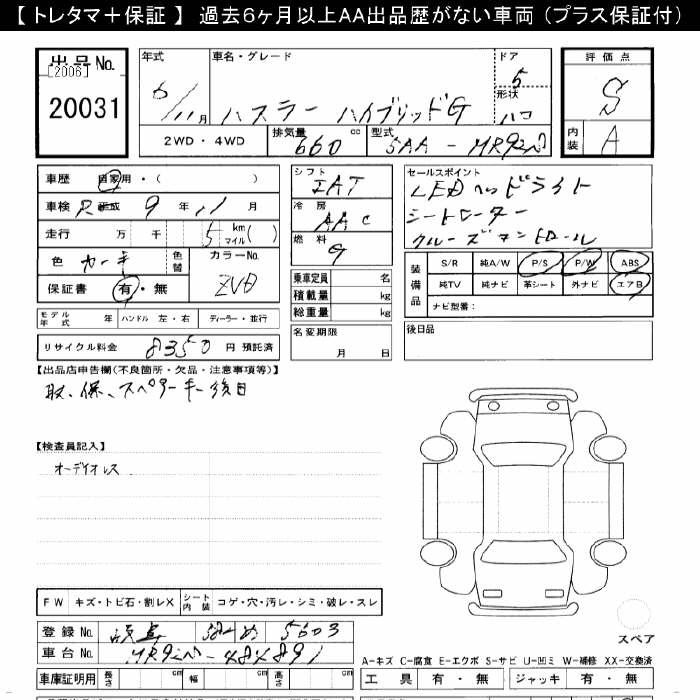 【 トレタマ＋保証 】 過去6ヶ月以上AA出品歴がない車両 (プラス保証付)
出品No. [2006] 20031
年式 6/11月
車名・グレード ハスラー ハイブリッドG
ドア 5
形状 ハコ
評価点 S
内装 A
2WD・4WD 排気量 660 cc 型式 5AA-MR92S
車歴 自家用・( )
シフト IAT
セールスポイント
LEDヘッドライト
シートヒーター
クルーズコントロール
車検 R 平成 9 年 11 月
冷房 AAC
走行 万 千 5 km マイル( )
燃料 G
色 カーキ 色替 カラーNo. ZVD
保証書 有・無
装備品 S/R 純A/W P/S P/W ABS
純TV 純ナビ 革シート 外ナビ エアB
ナビ型番:
乗車定員 名
積載量 kg
総重量 kg
モデル年式 年 ハンドル 左・右 ディーラー・並行
名変期限 月 日
後日品
リサイクル料金 8350 円 預託済
【出品店申告欄(不良箇所・欠品・注意事項等)】
取、保、スペアキー後日
【検査員記入】
オーディオレス
FW キズ・トビ石・割レX シート内装 コゲ・穴・汚レ・シミ・破レ・スレ
スペア
登録No. 5603
車台No. MR92S-484891
A-キズ C-腐食 E-エクボ S-サビ U-凹ミ W-補修 XX-交換済
車庫証明用 長さ cm 幅 cm 高さ cm
工具 有・無 ジャッキ 有・無